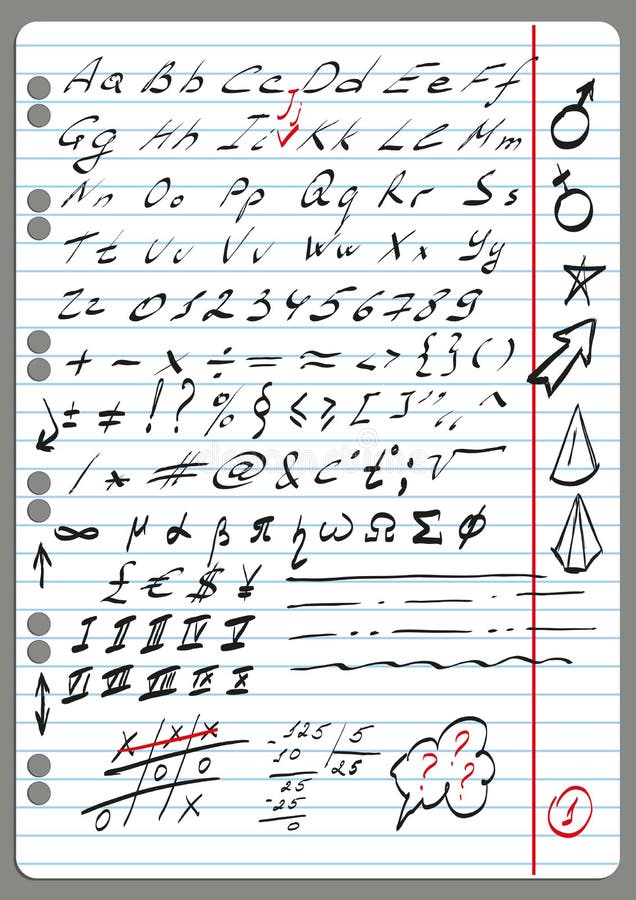 Aa Bb Cc Dd Ee Ff
Jj
Gg Hh Ii Kk Ll Mm
Nn Oo Pp Qq Rr Ss
Tt Uu Vv Ww Xx Yy
Zz 0123456789
+ − × ÷ = ≈ <> {} ()
± ≠ ! ? % § ≤ ≥ [ ] " ,, ^
/ * # @ & c't; √
∞ μ α β π η ω Ω Σ φ
£ € $ ¥
I II III IV V
VI VII VIII IX X
X X X
O O
O X
-125 / 5
10 / 25
25
-25
0
? ? ?
1